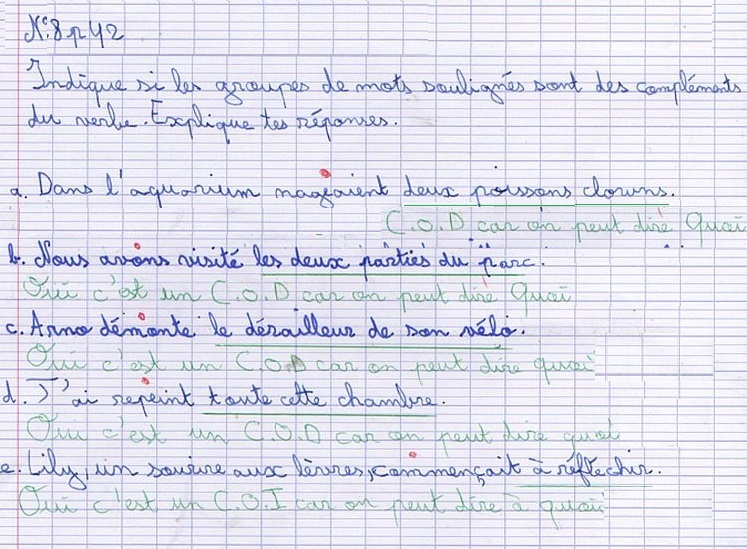 N°8 p 42
Indique si les groupes de mots soulignés sont des compléments
du verbe. Explique tes réponses.
a. Dans l'aquarium nageaient deux poissons clowns.
C.O.D car on peut dire Quoi
b. Nous avons visité les deux parties du parc.
Oui c'est un C.O.D car on peut dire Quoi
c. Arno démonte le dérailleur de son vélo.
Oui c'est un C.O.D car on peut dire quoi
d. J'ai repeint toute cette chambre.
Oui c'est un C.O.D car on peut dire quoi
e. Lily, un sourire aux lèvres, commençait à réfléchir.
Oui c'est un C.O.I car on peut dire à quoi